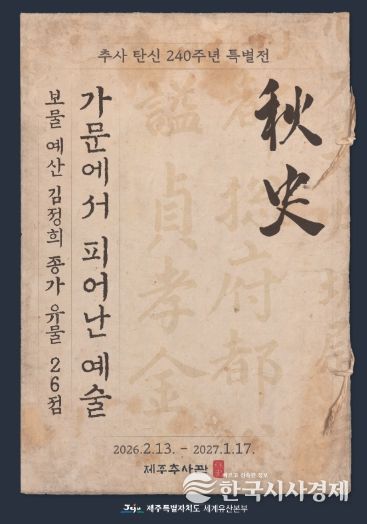 추사 탄신 240주년 특별전
秋史
가문에서 피어난 예술
보물 예산 김정희 종가 유물 26점
諡貞孝金
府都
2026.2.13. - 2027.1.17.
제주추사관
빠르고 정확한 정보
한국시사경제
Jeju 제주특별자치도 세계유산본부